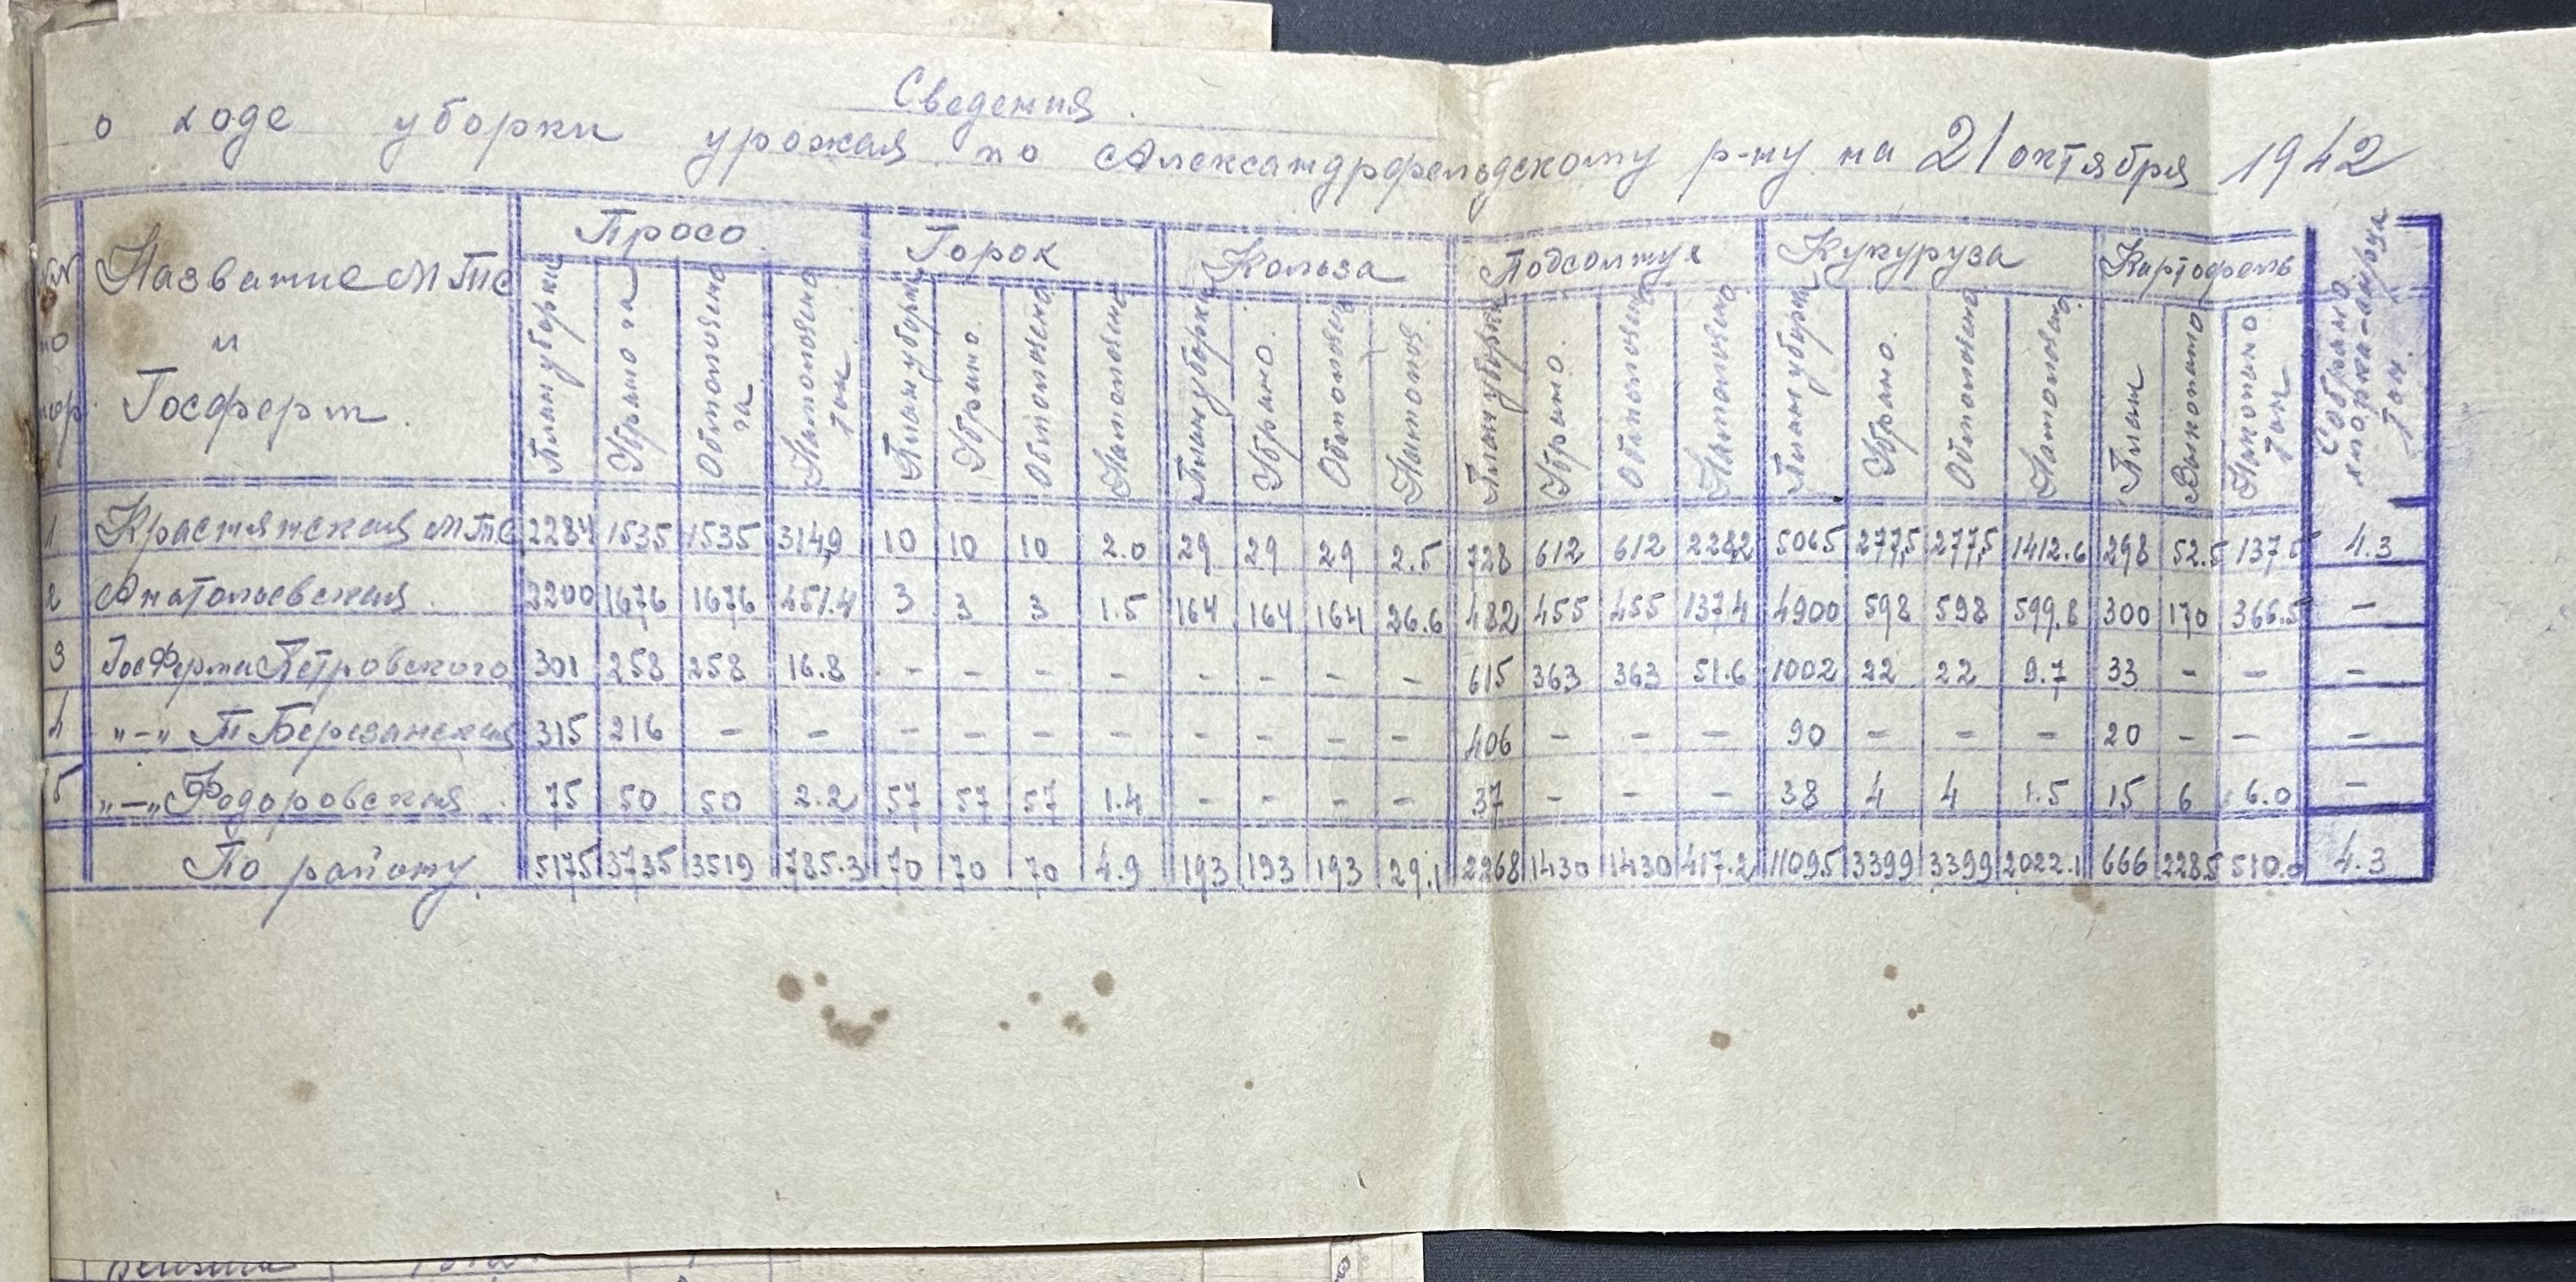 Сведения.
о ходе уборки урожая по Александрфельдскому р-ну на 21 октября 1942
№№ по пор. | Название МТС и Госферм. | Просо | Горох | Кольза | Подсолнух | Кукуруза | Картофель | Собрано хлопка-сырца тон.
План уборки | Убрано га | Обмолочено га | Намолочено тон. | План уборки | Убрано. | Обмолочено | Намолочено | План уборки | Убрано. | Обмолочено | Намолоч. | План уборки | Убрано. | Обмолочено | Намолочено | План уборки | Убрано. | Обмолочено | Намолочено. | План | Выкопано | Накопано тон
1 | Краснянская МТС | 2284 | 1535 | 1535 | 314,9 | 10 | 10 | 10 | 2.0 | 29 | 29 | 29 | 2.5 | 728 | 612 | 612 | 228,2 | 5065 | 2775 | 2775 | 1412.6 | 298 | 52.5 | 137.5 | 4.3
2 | Анатольевская | 2200 | 1676 | 1676 | 451.4 | 3 | 3 | 3 | 1.5 | 164 | 164 | 164 | 26.6 | 482 | 455 | 455 | 137.4 | 4900 | 598 | 598 | 599.8 | 300 | 170 | 366.5 | –
3 | ГосФерма Петровского | 301 | 258 | 258 | 16.8 | – | – | – | – | – | – | – | – | 615 | 363 | 363 | 51.6 | 1002 | 22 | 22 | 9.7 | 33 | – | – | –
4 | „–„ Т Березанская | 315 | 216 | – | – | – | – | – | – | – | – | – | – | 406 | – | – | – | 90 | – | – | – | 20 | – | – | –
5 | „–„ Федоровская. | 75 | 50 | 50 | 2.2 | 57 | 57 | 57 | 1.4 | – | – | – | – | 37 | – | – | – | 38 | 4 | 4 | 1.5 | 15 | 6 | 6.0 | –
По району. | 5175 | 3735 | 3519 | 785.3 | 70 | 70 | 70 | 4.9 | 193 | 193 | 193 | 29.1 | 2268 | 1430 | 1430 | 417.2 | 11095 | 3399 | 3399 | 2022.1 | 666 | 228.5 | 510.0 | 4.3